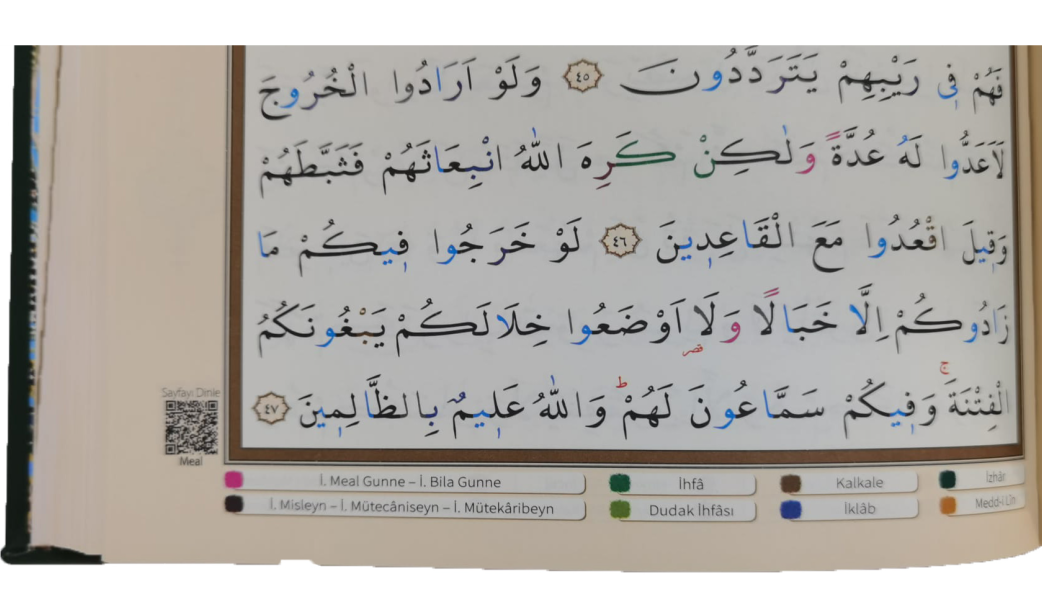 فَهُمْ فٖى رَيْبِهِمْ يَتَرَدَّدُونَ ﴿٤٥﴾ وَلَوْ اَرَادُوا الْخُرُوجَ
لَاَعَدُّوا لَهُ عُدَّةً وَلٰكِنْ كَرِهَ اللّٰهُ انْبِعَاثَهُمْ فَثَبَّطَهُمْ
وَقٖيلَ اقْعُدُوا مَعَ الْقَاعِدٖينَ ﴿٤٦﴾ لَوْ خَرَجُوا فٖيكُمْ مَا
زَادُوكُمْ اِلَّا خَبَالًا وَلَا اَوْضَعُوا خِلَالَكُمْ يَبْغُونَكُمُ
قصر
الْفِتْنَةَۚ وَفٖيكُمْ سَمَّاعُونَ لَهُمْؕ وَاللّٰهُ عَلٖيمٌ بِالظَّالِمٖينَ ﴿٤٧﴾
Sayfayı Dinle
Meal
İ. Meal Gunne – İ. Bila Gunne
İhfâ
Kalkale
İzhâr
İ. Misleyn – İ. Mütecâniseyn – İ. Mütekâribeyn
Dudak İhfâsı
İklâb
Medd-i Lîn